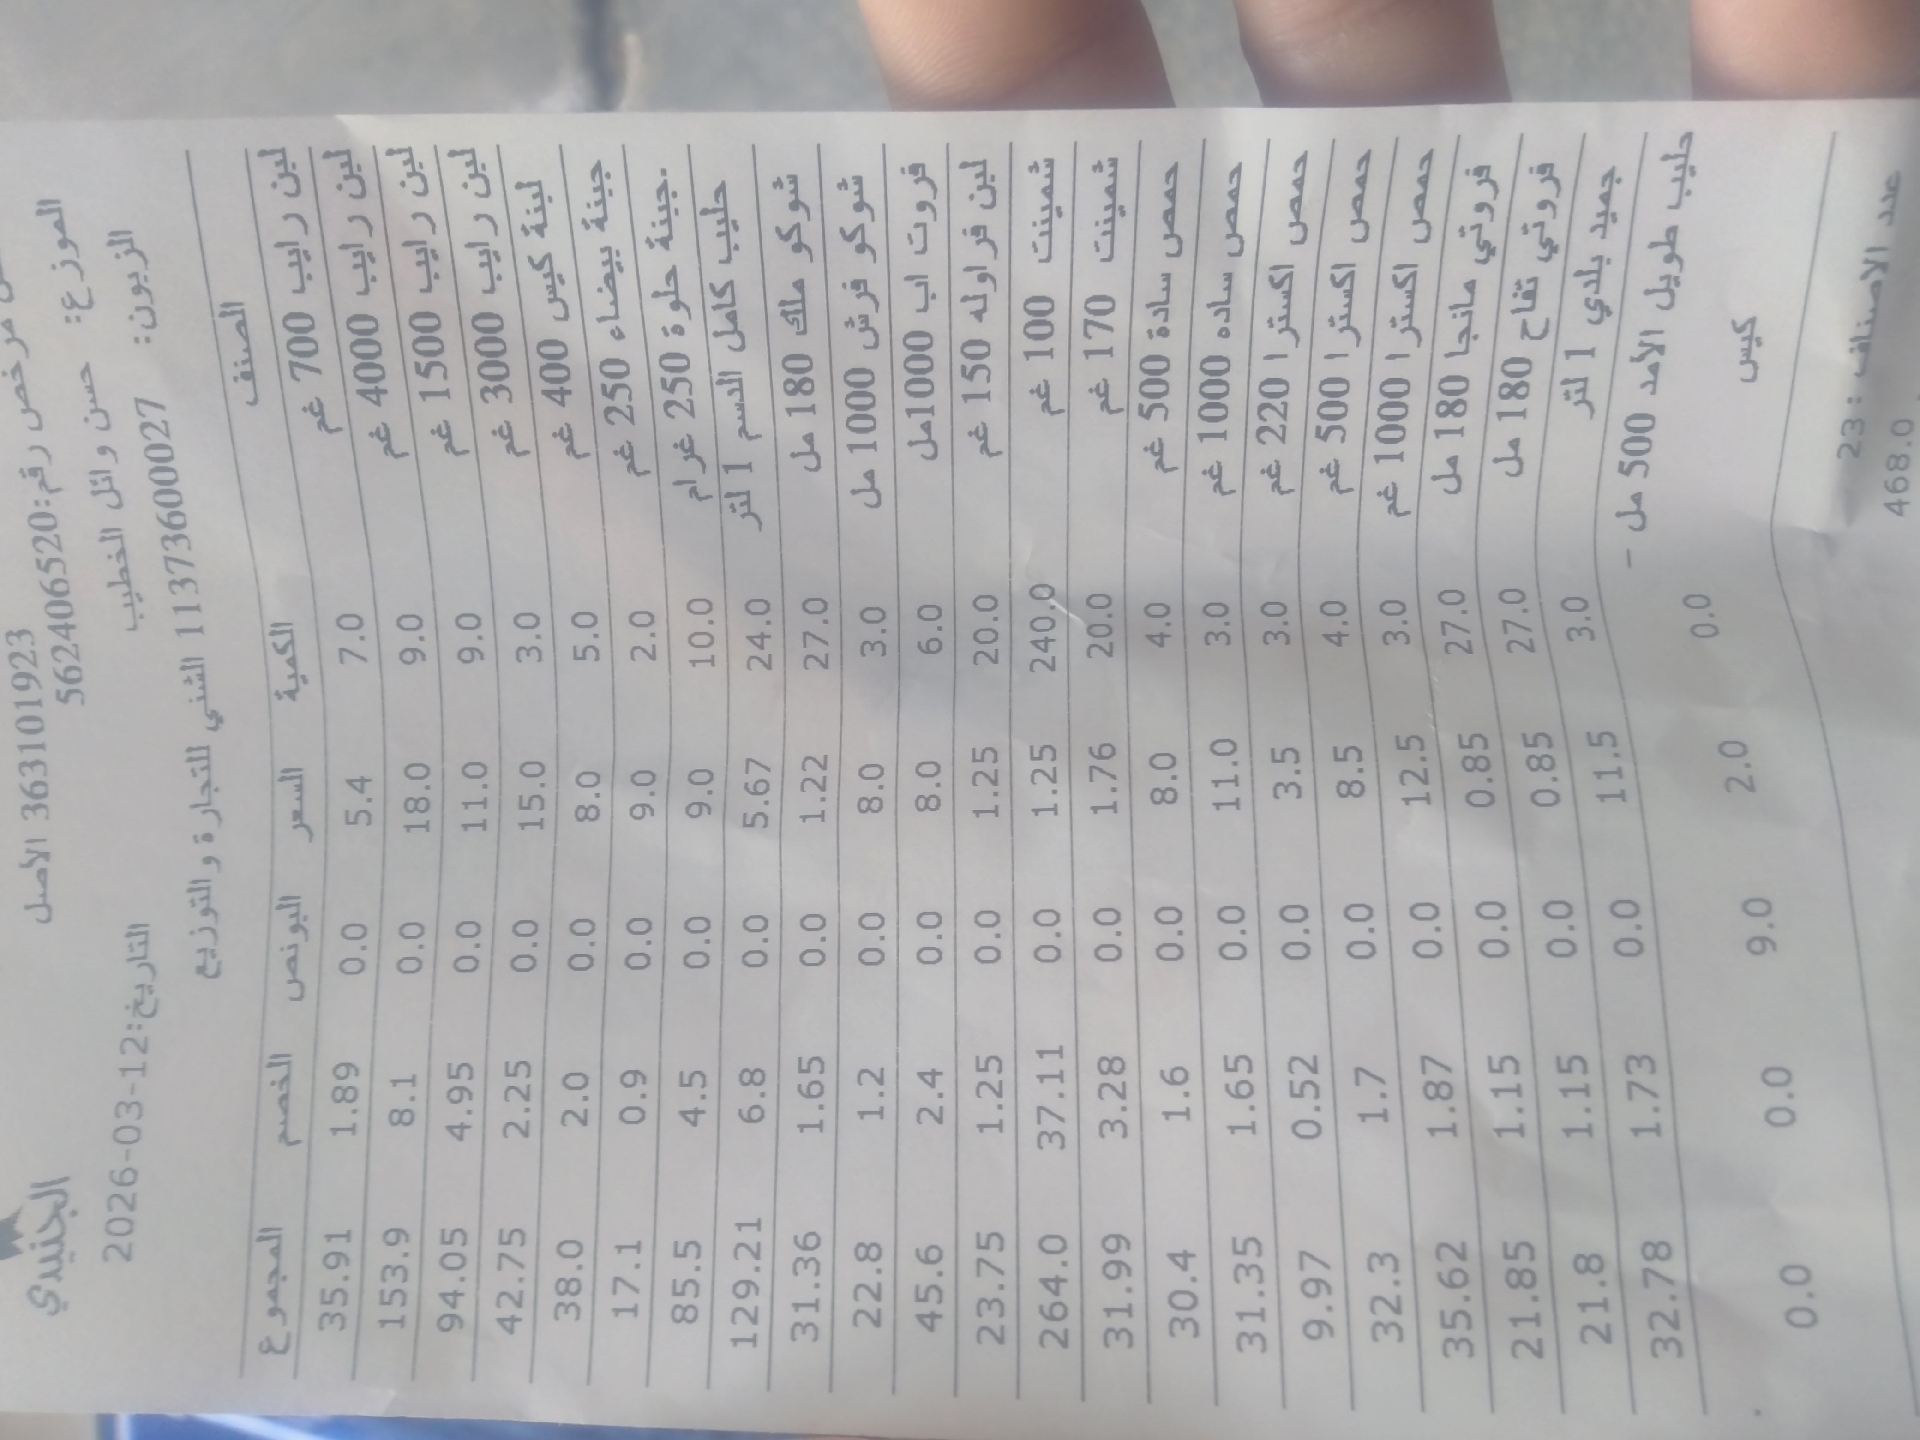 الجنيدي
مرخص رقم:562406520
363101923 الأصل
الموزع: 562406520
حسن وائل الخطيب
التاريخ:12-03-2026
الزبون: 1137360027 الشني للتجارة والتوزيع
الصنف الكمية السعر البونص الخصم المجموع
لبن رايب 700 غم 7.0 5.4 0.0 1.89 35.91
لبن رايب 4000 غم 9.0 18.0 0.0 8.1 153.9
لبن رايب 1500 غم 9.0 11.0 0.0 4.95 94.05
لبن رايب 3000 غم 3.0 15.0 0.0 2.25 42.75
لبنة كيس 400 غم 5.0 8.0 0.0 2.0 38.0
جبنة بيضاء 250 غم 2.0 9.0 0.0 0.9 17.1
جبنة حلوة 250 غرام. 10.0 9.0 0.0 4.5 85.5
حليب كامل الدسم 1 لتر 24.0 5.67 0.0 6.8 129.21
شوكو ملك 180 مل 27.0 1.22 0.0 1.65 31.36
شوكو فرش 1000 مل 3.0 8.0 0.0 1.2 22.8
فروت اب 1000مل 6.0 8.0 0.0 2.4 45.6
لبن فراوله 150 غم 20.0 1.25 0.0 1.25 23.75
شمينت 100 غم 240.0 1.25 0.0 37.11 264.0
شمينت 170 غم 20.0 1.76 0.0 3.28 31.99
حمص سادة 500 غم 4.0 8.0 0.0 1.6 30.4
حمص ساده 1000 غم 3.0 11.0 0.0 1.65 31.35
حمص اكسترا 220 غم 3.0 3.5 0.0 0.52 9.97
حمص اكسترا 500 غم 4.0 8.5 0.0 1.7 32.3
حمص اكسترا 1000 غم 3.0 12.5 0.0 1.87 35.62
فروتي مانجا 180 مل 27.0 0.85 0.0 1.15 21.85
فروتي تفاح 180 مل 27.0 0.85 0.0 1.15 21.8
جميد بلدي 1 لتر 3.0 11.5 0.0 1.73 32.78
حليب طويل الأمد 500 مل -
كيس 0.0 2.0 9.0 0.0 0.0
عدد الاصناف: 23
468.0